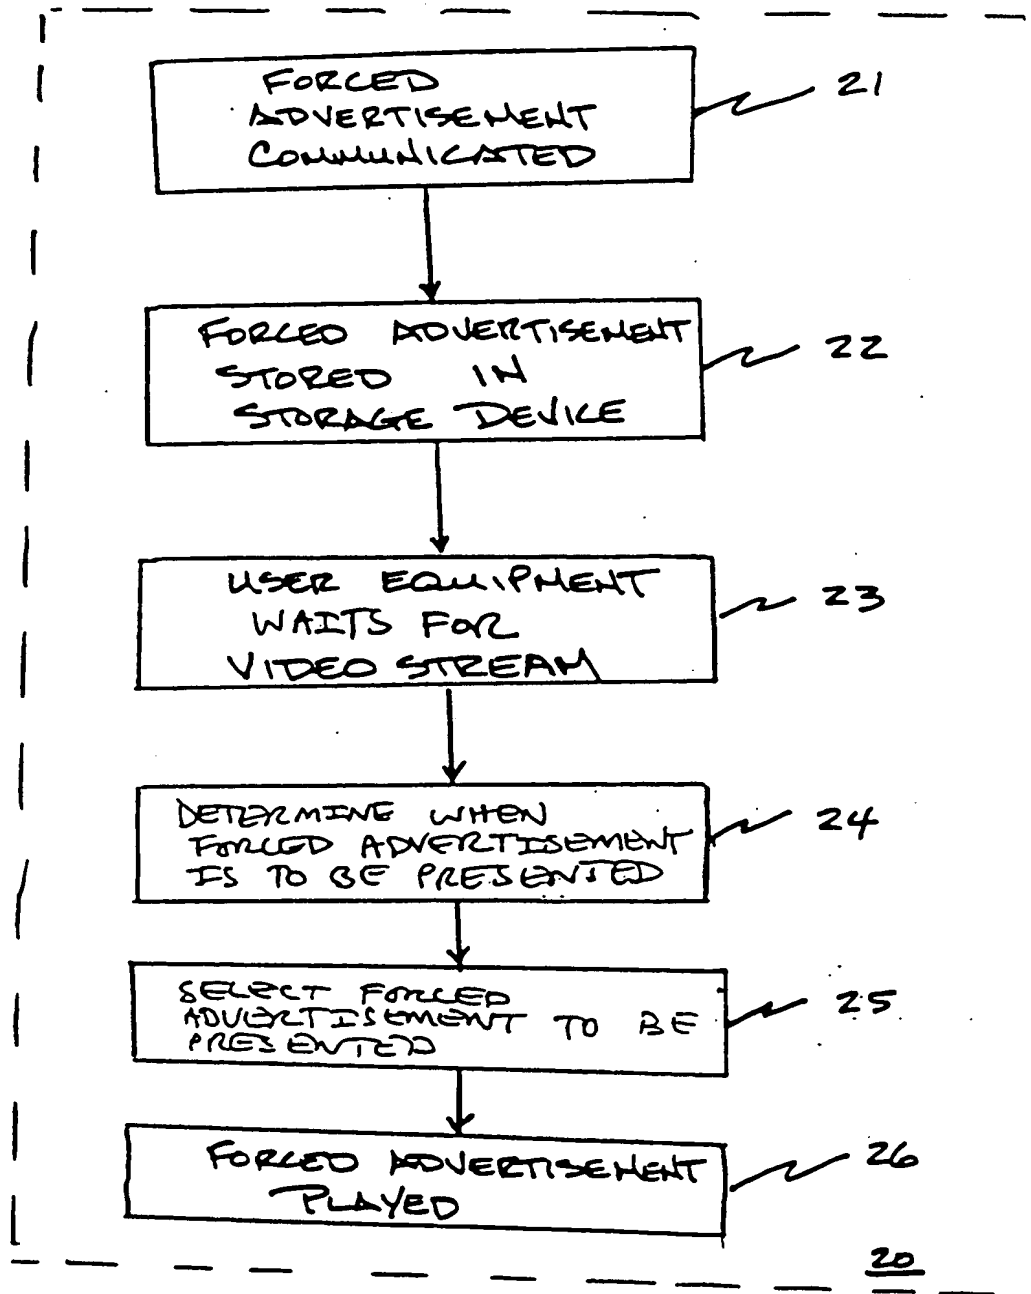 FORCED
ADVERTISEMENT
COMMUNICATED
21
FORCED ADVERTISEMENT
STORED IN
STORAGE DEVICE
22
USER EQUIPMENT
WAITS FOR
VIDEO STREAM
23
DETERMINE WHEN
FORCED ADVERTISEMENT
IS TO BE PRESENTED
24
SELECT FORCED
ADVERTISEMENT TO BE
PRESENTED
25
FORCED ADVERTISEMENT
PLAYED
26
20